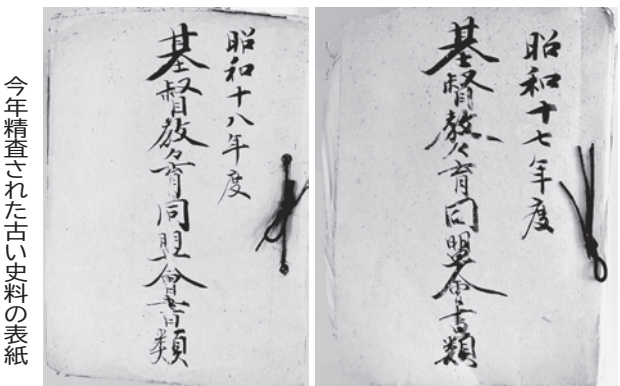 昭和十七年度
基督教々育同盟會書類
昭和十八年度
基督教々育同盟會書類
今年精査された古い史料の表紙